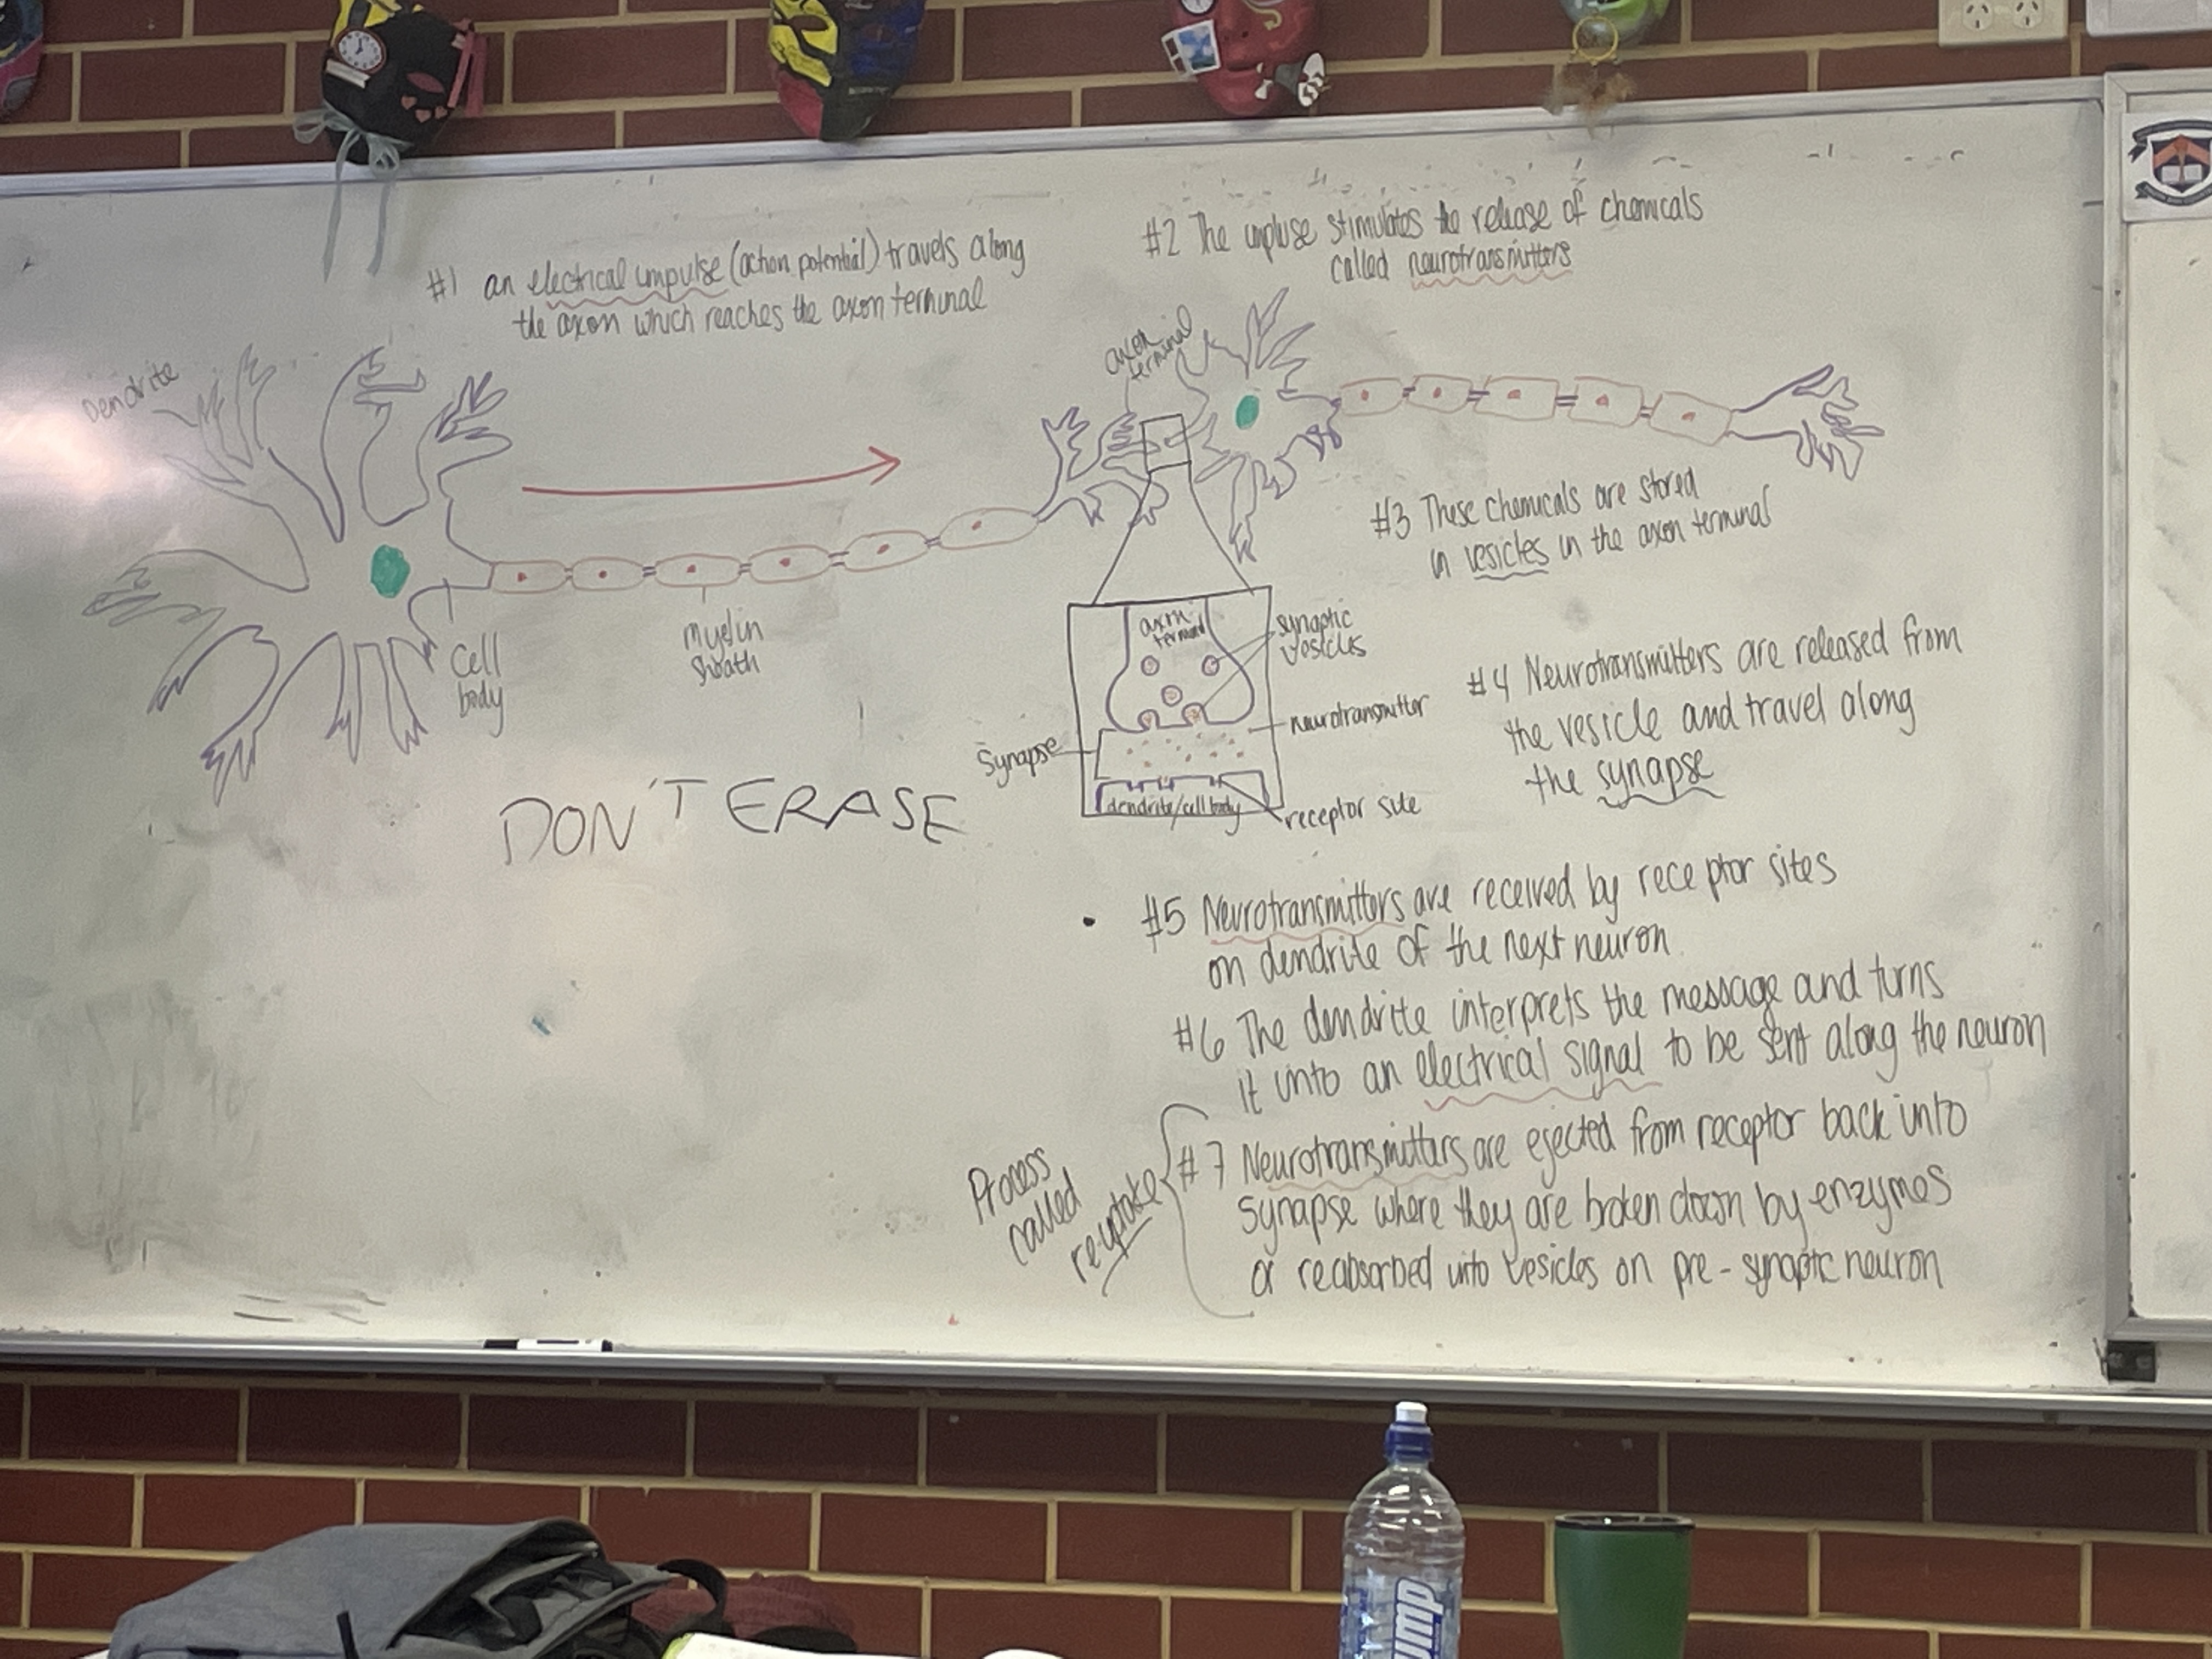 #1 an electrical impulse (action potential) travels along
the axon which reaches the axon terminal
#2 The impluse stimulates the release of chemicals
called neurotransmitters
Dendrite
axon
terminal
Cell
body
myelin
sheath
#3 These chemicals are stored
in vesicles in the axon terminal
axon
terminal
synaptic
vesicles
neurotransmitter
Synapse
dendrite/cell body
receptor site
#4 Neurotransmitters are released from
the vesicle and travel along
the synapse
DON'T ERASE
• #5 Neurotransmitters are received by receptor sites
on dendrite of the next neuron.
#6 The dendrite interprets the message and turns
it into an electrical signal to be sent along the neuron
Process
called
re-uptake
#7 Neurotransmitters are ejected from receptor back into
synapse where they are broken down by enzymes
or reabsorbed into vesicles on pre-synaptic neuron